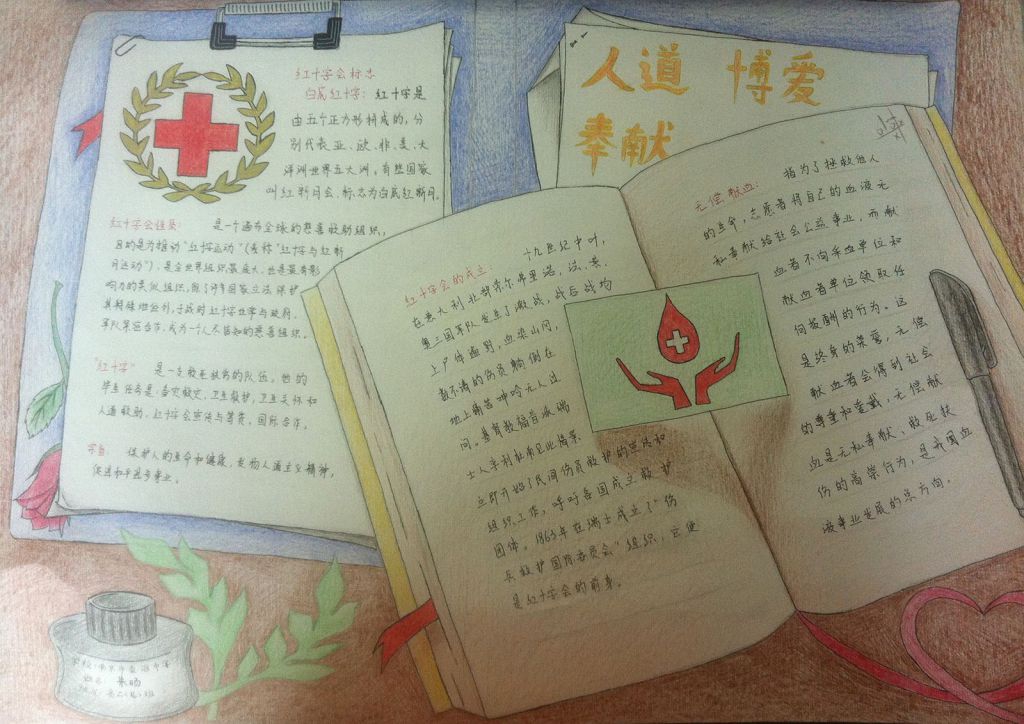 红十字会标志
白底红十字：红十字是
由五个正方形构成的，分
别代表亚、欧、非、美、大
洋洲世界五大洲，有些国家
叫红新月会，标志为白底红新月。
红十字会性质： 是一个遍布全球的慈善救助组织，
目的是为推动“红十字运动”（或称“红十字与红新
月运动”），是全世界组织最庞大，也是最有影
响力的类似组织，除了许多国家立法保护
其特殊地位外，于战时红十字也常与政府、
军队紧密合作，
“红十字” 是一支救死扶伤的队伍。他的
人道救助，红十字会宣传与筹资，国际合作。
宗旨： 保护人的生命和健康，发扬人道主义精神，
促进和平进步事业。
人道 博爱
奉献
红十字会的成立： 十九世纪中叶，
在意大利北部索尔弗里诺，法、奥、
撒三国军队发生了激战，战后战场
上尸体遍野，血染山冈，
数不清的伤员躺倒在
地上痛苦呻吟无人过
问。基督教福音派瑞
士人亨利杜南见此情景
立即开始了民间伤员救护的宣传和
组织工作，呼吁各国成立救护
团体。1863年在瑞士成立了“伤
兵救护国际委员会”组织，它便
是红十字会的前身。
无偿献血： 指为了拯救他人
的生命，志愿者将自己的血液无
私奉献给社会公益事业，而献
血者不向采血单位和
献血者单位领取任
何报酬的行为。这
是终身的荣誉，无偿
献血者会得到社会
的尊重和爱戴，无偿献
血是无私奉献、救死扶
伤的高崇行为，是我国血
液事业发展的总方向。